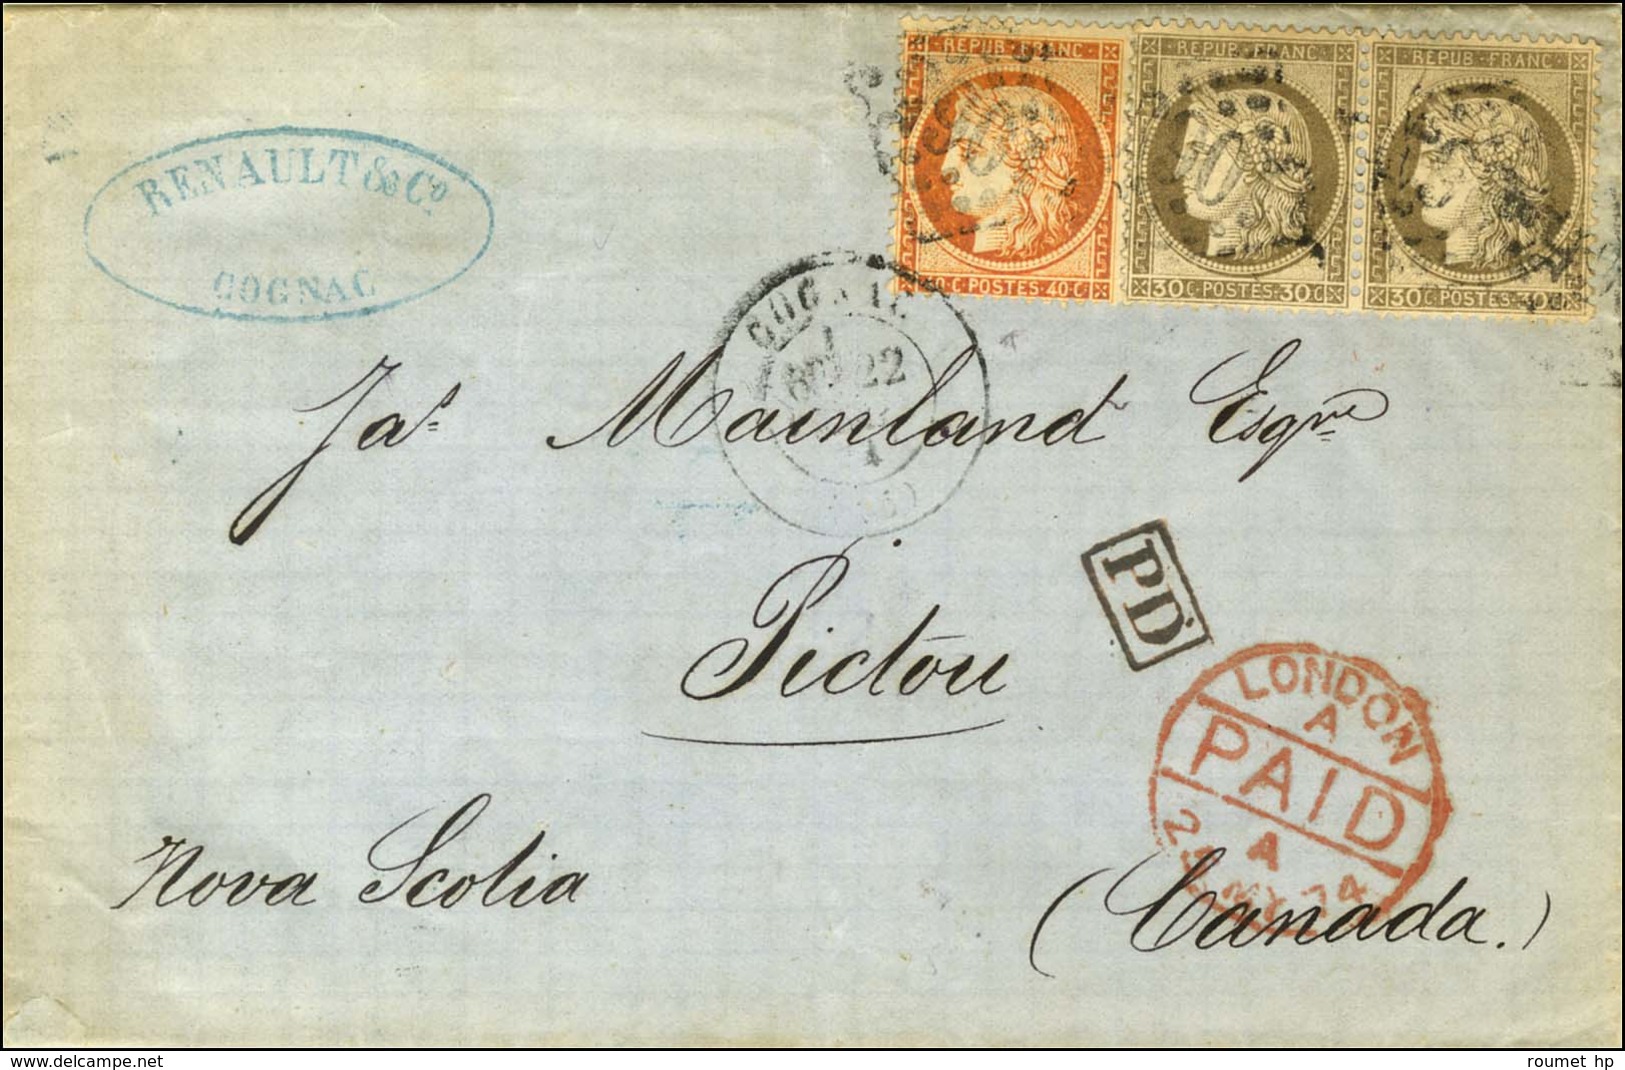 REPUB · FRANC
REPUB · FRANC
REPUB · FRANC
40 C · POSTES · 40 C
30 C · POSTES · 30 C
30 C · POSTES · 30 C
RENAULT & Co.
COGNAC
COGNAC
22
Jas. Mainland Esqre
PD
Pictou
LONDON
A
PAID
A
MY 74
Nova Scotia
(Canada.)
www.delcampe.net
roumet hp